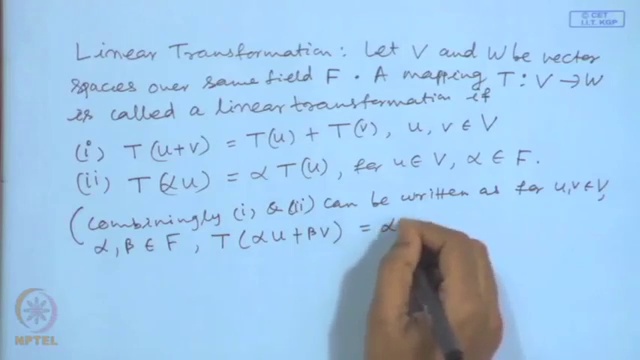 © CET
I.I.T. KGP
Linear Transformation: Let V and W be vector
spaces over same field F. A mapping T: V → W
is called a linear transformation if
(i) T(u+v) = T(u) + T(v), u, v ∈ V
(ii) T(αu) = α T(u), for u ∈ V, α ∈ F.
(Combiningly (i) & (ii) can be written as for u, v ∈ V,
α, β ∈ F, T(αu+βv) = α
NPTEL